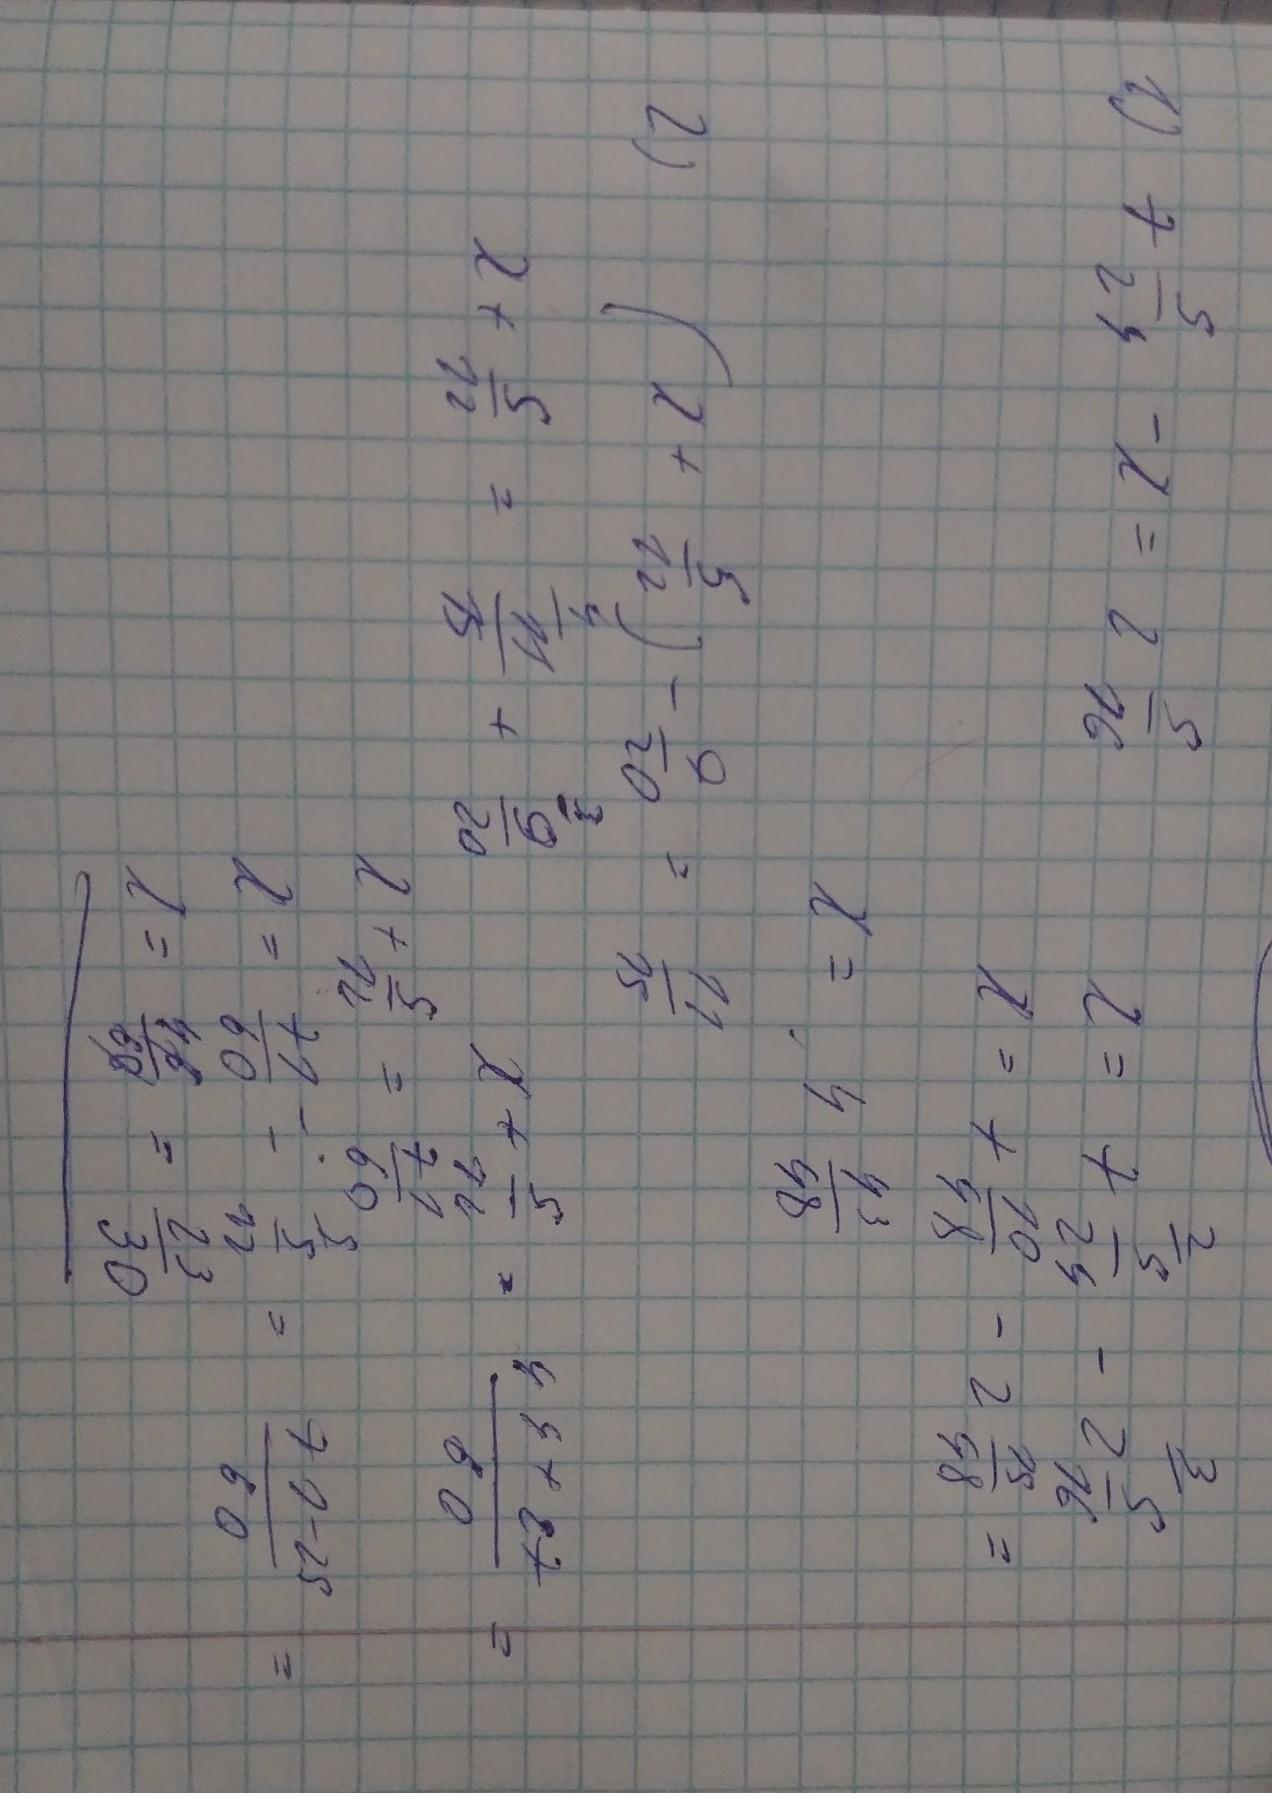 1) 7 5/24 - x = 2 5/16
x = 7 5/24 2 - 2 5/16 3
x = 7 10/48 - 2 15/48 =
x = 4 43/48
2) (x + 5/12) - 9/20 = 11/15
x + 5/12 = 11/15 4 + 9/20 3
x + 5/12 = 44+27/60 =
x + 5/12 = 71/60
x = 71/60 - 5/12 5 = 71-25/60 =
x = 46/60 = 23/30